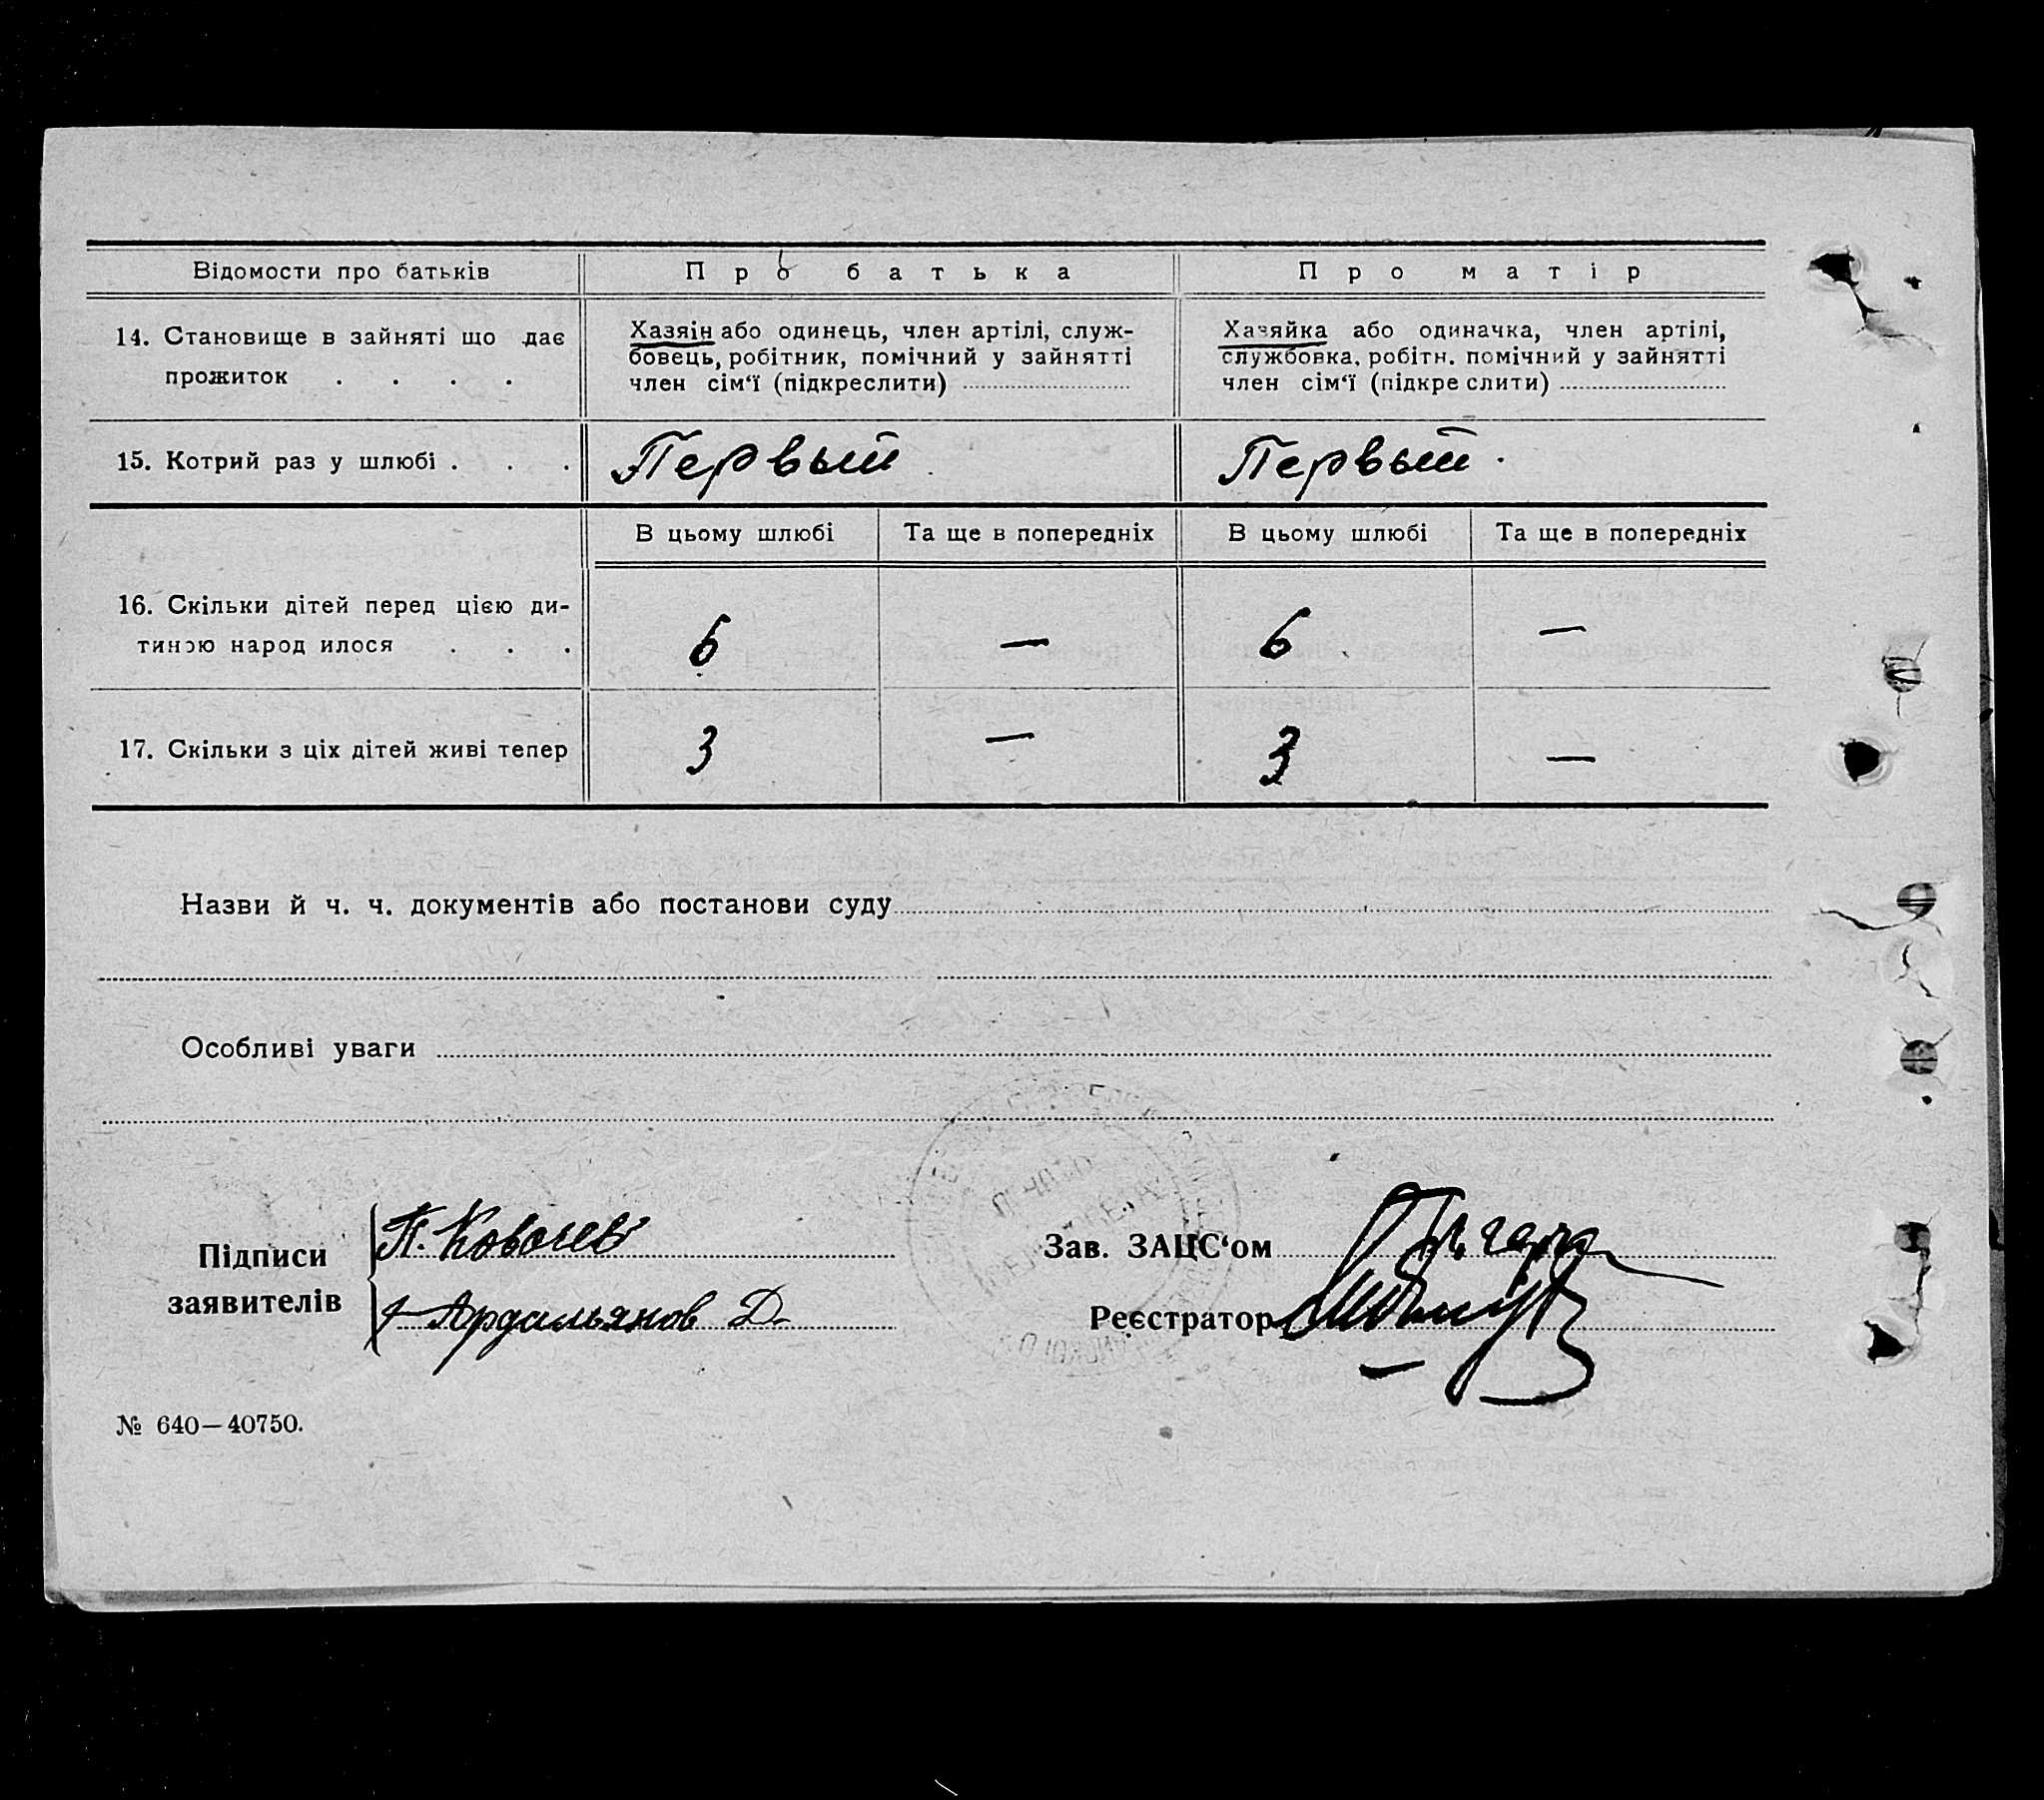 Відомости про батьків Про батька Про матір
14. Становище в зайняті що дає
прожиток . . . .
Хазяін або одинець, член артілі, служ-
бовець, робітник, помічний у зайнятті
член сім‘ї (підкреслити)
Хазяйка або одиначка, член артілі,
службовка, робітн. помічний у зайнятті
член сім‘ї (підкре слити)
15. Котрий раз у шлюбі . . . Первый Первый.
В цьому шлюбі Та ще в попередніх В цьому шлюбі Та ще в попередніх
16. Скільки дітей перед цією ди-
тиною народ илося . . . 6 — 6 —
17. Скільки з ціх дітей живі тепер 3 — 3 —
Назви й ч. ч. документів або постанови суду
Особливі уваги
Підписи
заявителів
П.
Ардальянов Д.
Зав. ЗАЦС‘ом
Реєстратор
№ 640—40750.